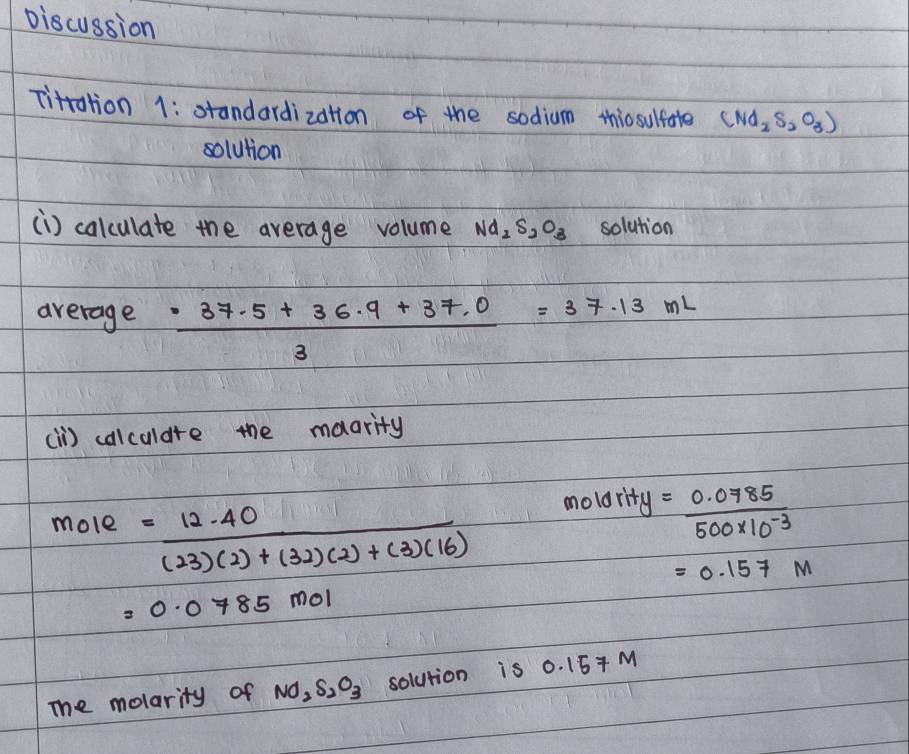 Discussion
Titration 1: standardization of the sodium thiosulfate (Na₂S₂O₃)
solution
(i) calculate the average volume Na₂S₂O₃ solution
average = 37.5 + 36.9 + 37.0 = 37.13 mL
3
(ii) calculate the maarity
mole = 12.40
(23)(2) + (32)(2) + (3)(16)
= 0.0785 mol
molarity = 0.0785
500×10⁻³
= 0.157 M
The molarity of Na₂S₂O₃ solution is 0.157 M